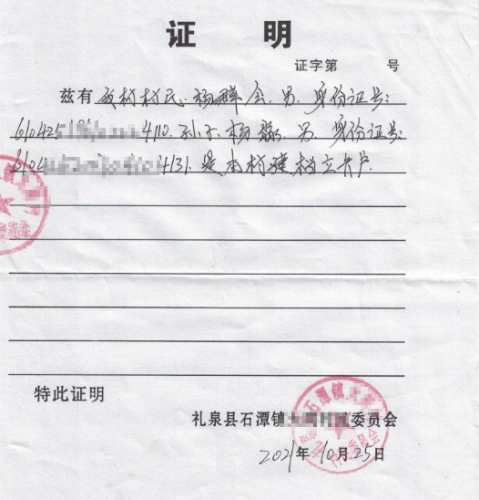 证 明
证字第 号
兹有 我村村民:杨群会,男,身份证号:
610425191 4110.孙子杨 男 身份证号:
6104 4131.是本村建档立卡户.
特此证明
礼泉县石潭镇 委员会
2021年10月25日
石潭镇